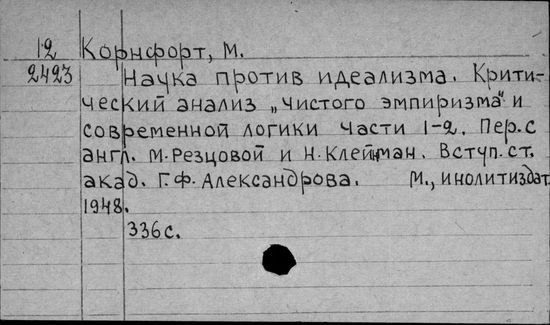 12 Корнфорт, М.
2423 Наука против идеализма. Крити-
ческий анализ „чистого эмпиризма" и
современной логики части 1-2. Пер. с
англ. М. Резцовой и Н. Клейнман. Вступ. ст.
акад. Г. Ф. Александрова. М., инолитиздат
1948.
336 с.